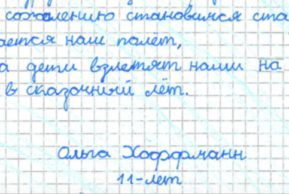 сожалению становимся ста
ается наш полет,
а дети взлетят наши на
в сказочный лёт.
Ольга Хоффманн
11-лет